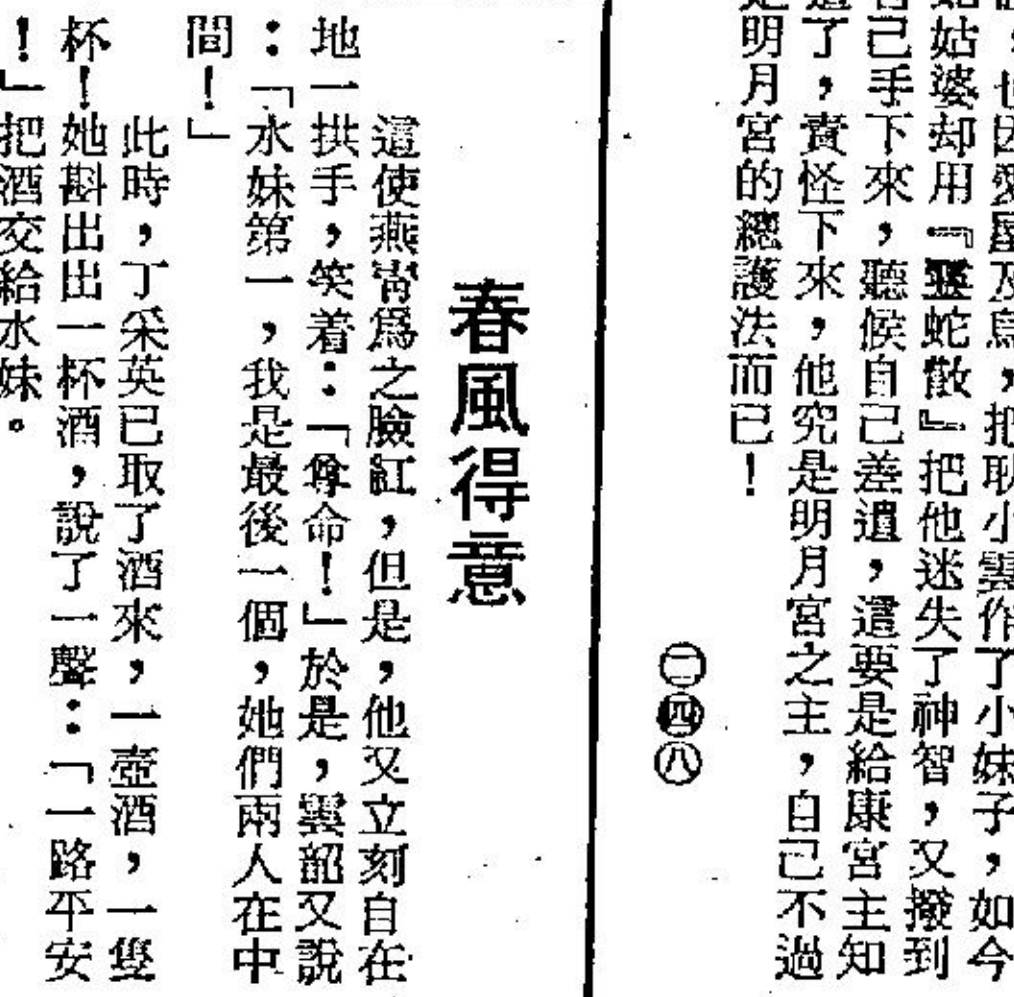 ，也因愛屋及烏，把耿小雲作了小妹子，如今
姑婆却用『靈蛇散』把他迷失了神智，又撥到
己手下來，聽候自己差遣，這要是給康宮主知
道了，責怪下來，他究是明月宮之主，自己不過
是明月宮的總護法而已！
二四八
春風得意
這使燕爲之臉紅，但是，他又立刻自在
地一拱手，笑着：「尊命！」於是，雲韶又說
：「水妹第一，我是最後一個，她們兩人在中
間！」
此時，丁采英已取了酒來，一壺酒，一隻
杯！她斟出出一杯酒，說了一聲：「一路平安
！」把酒交給水妹。